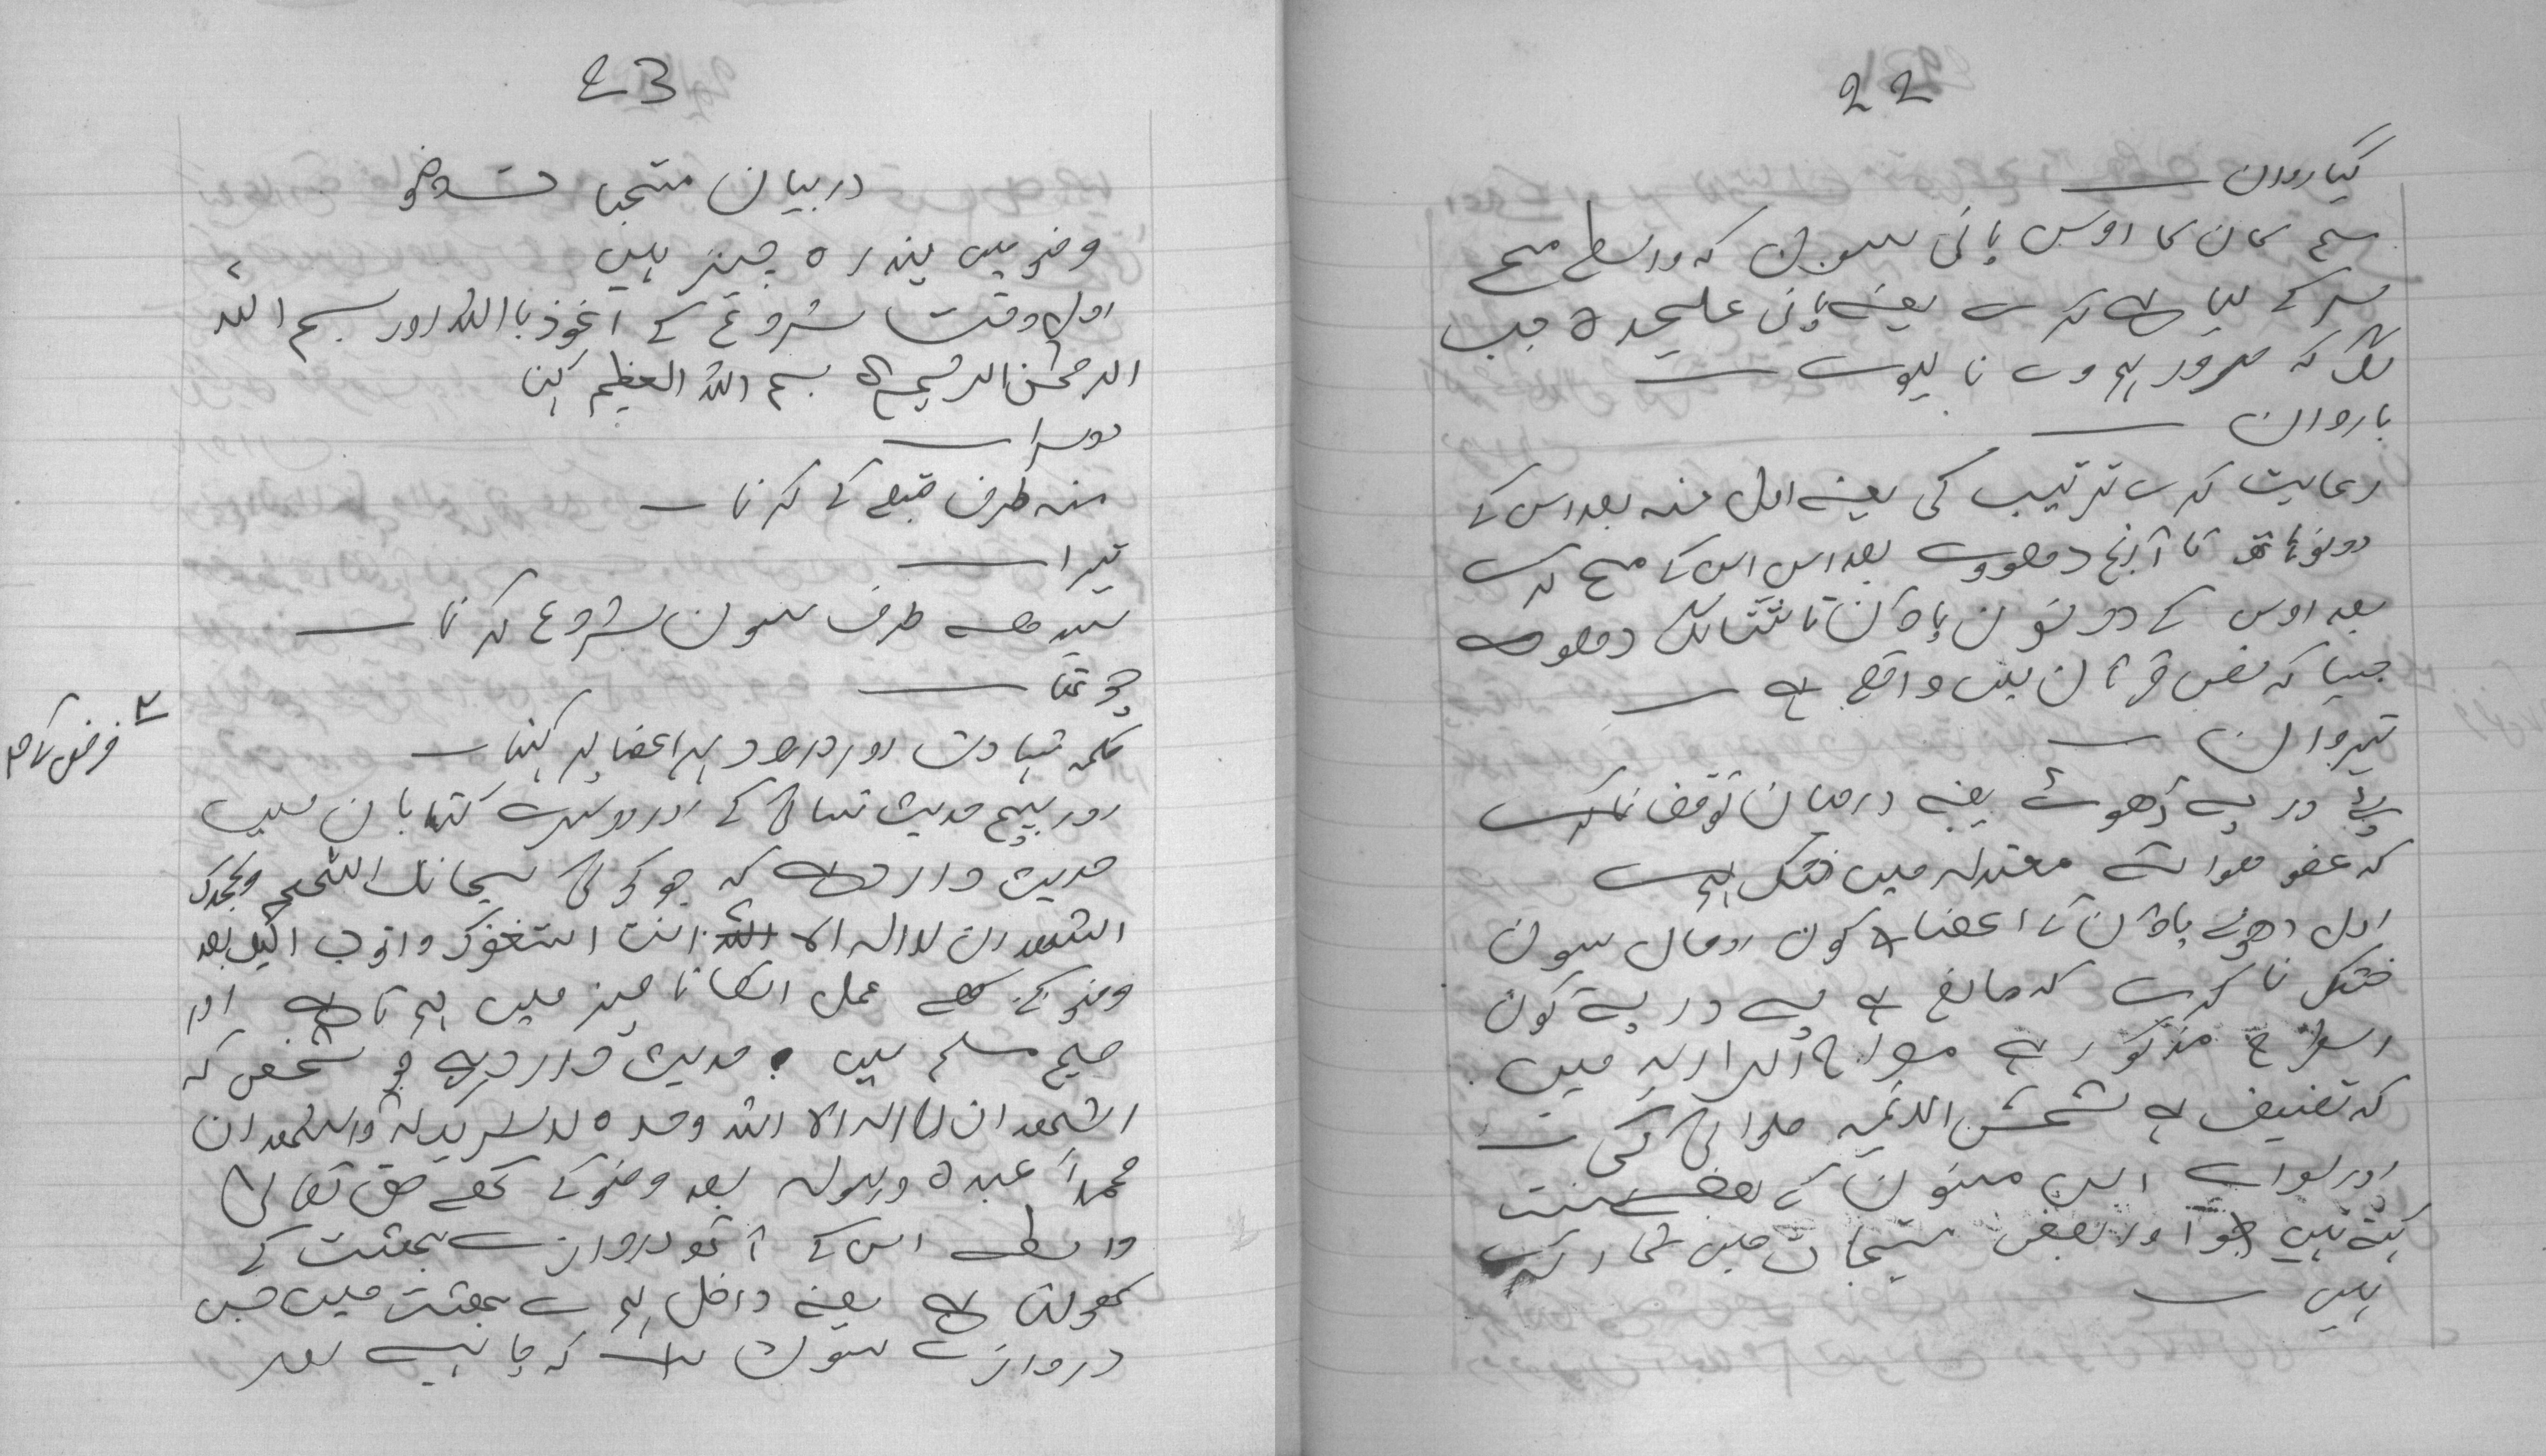 22
گیاروان
مسح کان کا اوس پانی سون کہ واسطے مسح
سر کے لیا ہے کرے یعنے پانی علیحدہ جب
تلک کہ ضرور نہووے نا لیوے
باروان
رعایت کرے ترتیب کی یعنے اول منہ بعد اس کے
دونو ہاتھ تا آرنج دھووے بعد اس اس کے مسح کرے
بعد اوس کے دونون پاؤن تا شتالنگ دھووے
جیسا کہ نص قرآن میں واقع ہے
تیروان
پے در پے دھوئے یعنے درمیان توقف نا کرے
کہ عضو ہوائے معتدلہ میں خشک ہووے
اول دھونے پاؤن کے اعضا کون رومال سون
خشک نا کرے کہ مانع ہے پے در پے کون
اسطرح مذکور ہے میں
کہ تصنیف ہے شمس الائمہ حلوائی کی
اور سوائے اس سنتون کے بعضے سنت
کہتے ہیں اور بعض مستحبات میں شمار کرتے
ہیں
23
در بیان مستحبات وضو
وضو میں پندرہ چیز ہیں
اول وقت شروع کے اعوذ باالله اور بسم الله
الرحمٰن الرحیم بسم الله العظیم کہنا
دوسرا
منہ طرف قبلے کے کرنا
تیسرا
سیدھے طرف سون شروع کرنا
چوتھا
کلمہ شہادت اور درود ہر اعضا پر کہنا
اور بیچ حدیث نسائی کے اور دوسرے کتابان میں
حدیث وارد ہے کہ جو کوئی سبحانك اللهم وبحمدك
اشهد ان لا اله الا انت استغفرك واتوب الیك بعد
وضو کے کہے عمل اسکا نا چیز میں ہوتا ہے اور
صحیح مسلم میں حدیث وارد ہے جو شخص کہ
اشهد ان لا اله الا الله وحده لا شریك له واشهد ان
محمداً عبده ورسوله بعد وضو کے کہے حق تعالیٰ
واسطے اس کے آٹھ دروازے بہشت کے
کھولتا ہے یعنے داخل ہووے بہشت میں جس
دروازے سون کہ چاہے بعد